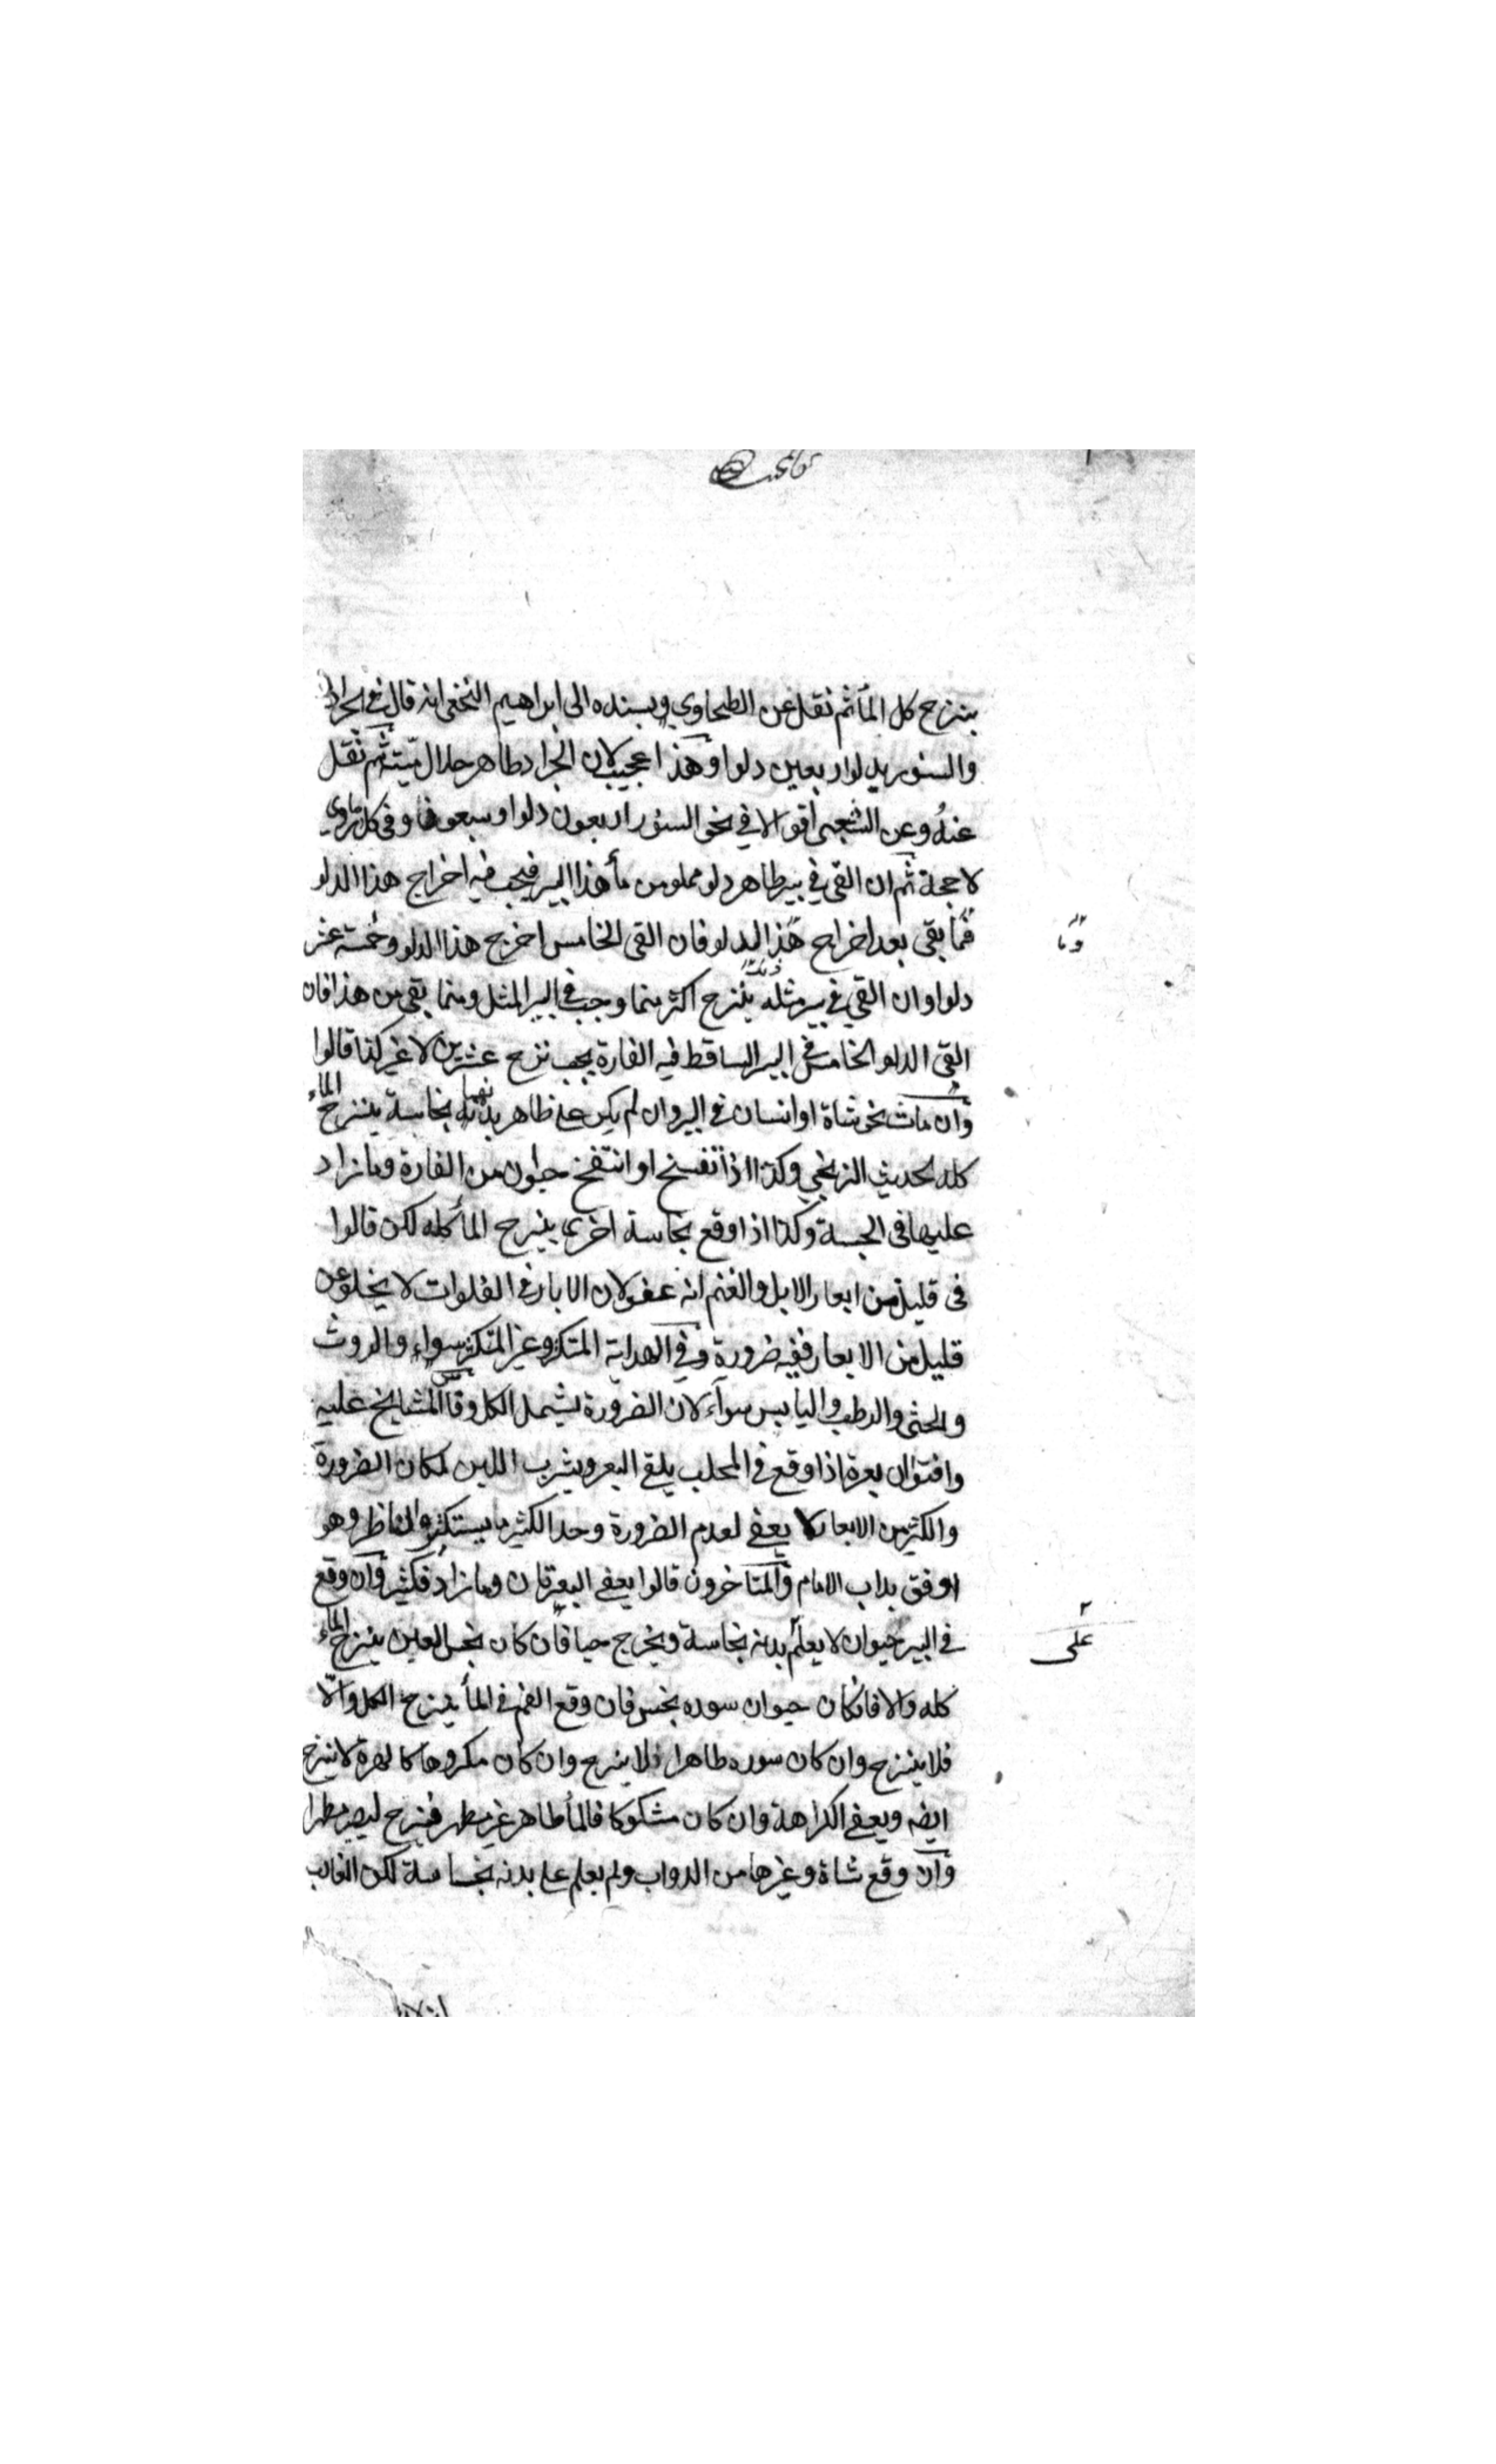 ينزح كل المأ ثم نقل عن الطحاوي وبسنده الى ابراهيم النخعى انه قال في الجراد
والسنور يدلو اربعين دلوا وهذا عجيب لان الجراد طاهر حلال ميتته ثم نقل
عنه وعن الشعبى اقوالا في نحو السنور اربعون دلوا وسبعون وفى كل ماروى
لا حجة ثم ان القي في بير طاهر دلو مملو من مأ هذا البير فيجب فيه اخراج هذا الدلو
فما بقى بعد اخراج هذا الدلو فان القى الخامس اخرج هذا الدلو وخمسة عشر
وما
دلوا وان القي في بير مثله ينزح اكثر مما وجب في البير المثل ومما بقى من هذا فان
القى الدلو الخامس في البير الساقط فيه الفارة يجب نزح عشرين لا غير كذا قالوا
وان مات نحو شاة او انسان في البير وان لم يكن على ظاهر بدنهما نجاسة ينزح الماء
كله لحديث الزنجي وكذا اذا تفسخ او انتفخ حيوان من الفارة وما زاد
عليها فى الجسة وكذا اذا وقع نجاسة اخرى ينزح المأ كله لكن قالوا
فى قليل من ابعار الابل والغنم انه عفو لان الابار في الفلوات لا يخلو عن
قليل من الابعار ففيه ضرورة وفي الهداية المتكسر وغير المتكسر سواء والروث
والخثى والرطب واليابس سوآء لان الضرورة يشمل الكل وقا المشايخ عليه
وافتوا ان بعرة اذا وقع في المحلب يلقى البعر ويشرب اللبن لمكان الضرورة
والكثير من الابعار لا يعفى لعدم الضرورة وحد الكثير ما يستكثره الناظر وهو
اوفق بداب الامام والمتاخرون قالوا يعفى البعرتان وما زاد فكثير وان وقع
في البير حيوان لا يعلم بدنه نجاسة ويخرج حيا فان كان نجس العين ينزح الماء
على
كله والا فان كان حيوان سوره نجس فان وقع الفم في المأ ينزح الكل والا
فلا ينزح وان كان سوره طاهرا فلا ينزح وان كان مكروها كالهرة لا ينزح
ايضه ويعفى الكراهة وان كان مشكوكا فالمأ طاهر غير مطهر فينزح ليصير مطهرا
وان وقع شاة وغيرها من الدواب ولم يعلم على بدنه نجاسة لكن الغالب